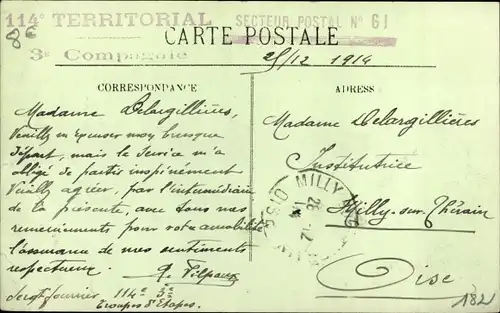 114e TERRITORIAL SECTEUR POSTAL No 61
8€
CARTE POSTALE
3e Compagnie
25/12 1914
CORRESPONDANCE
ADRESS
Madame Delargillières,
Veuillez m'excuser mon brusque
départ, mais le service m'a
obligé de partir inopinément
Veuillez agréer, par l'intermédiaire
de la présente, avec tous mes
remerciements pour votre amabilité
l'assurance de mes sentiments
respectueux.
Sergt fourrier 114e 3e
Troupes d'Etapes.
Madame Delargillières
Institutrice
Milly-sur-Thérain
Oise
MILLY
OISE
26 -12
182